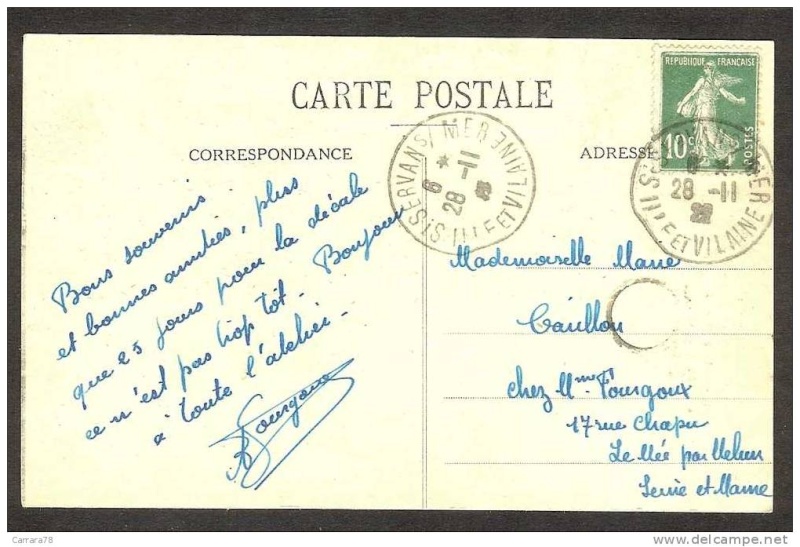 CARTE POSTALE
CORRESPONDANCE
ADRESSE
REPUBLIQUE FRANÇAISE
10c
POSTES
ST SERVANS/MER ILLE ET VILAINE
* 6
28 -11
ST SERVANS/MER ILLE ET VILAINE
28 -11
Bons souvenirs
et bonnes amitiés, plus
que 25 jours pour la décale
ce n'est pas trop tôt. Bonjour
a toute l'atelier.
Fourgoux
Mademoiselle Marie
Caullou
chez Mme Fourgoux
17 rue Chapu
Le Mée par Melun
Seine et Marne
Carrara78
delcampe.net